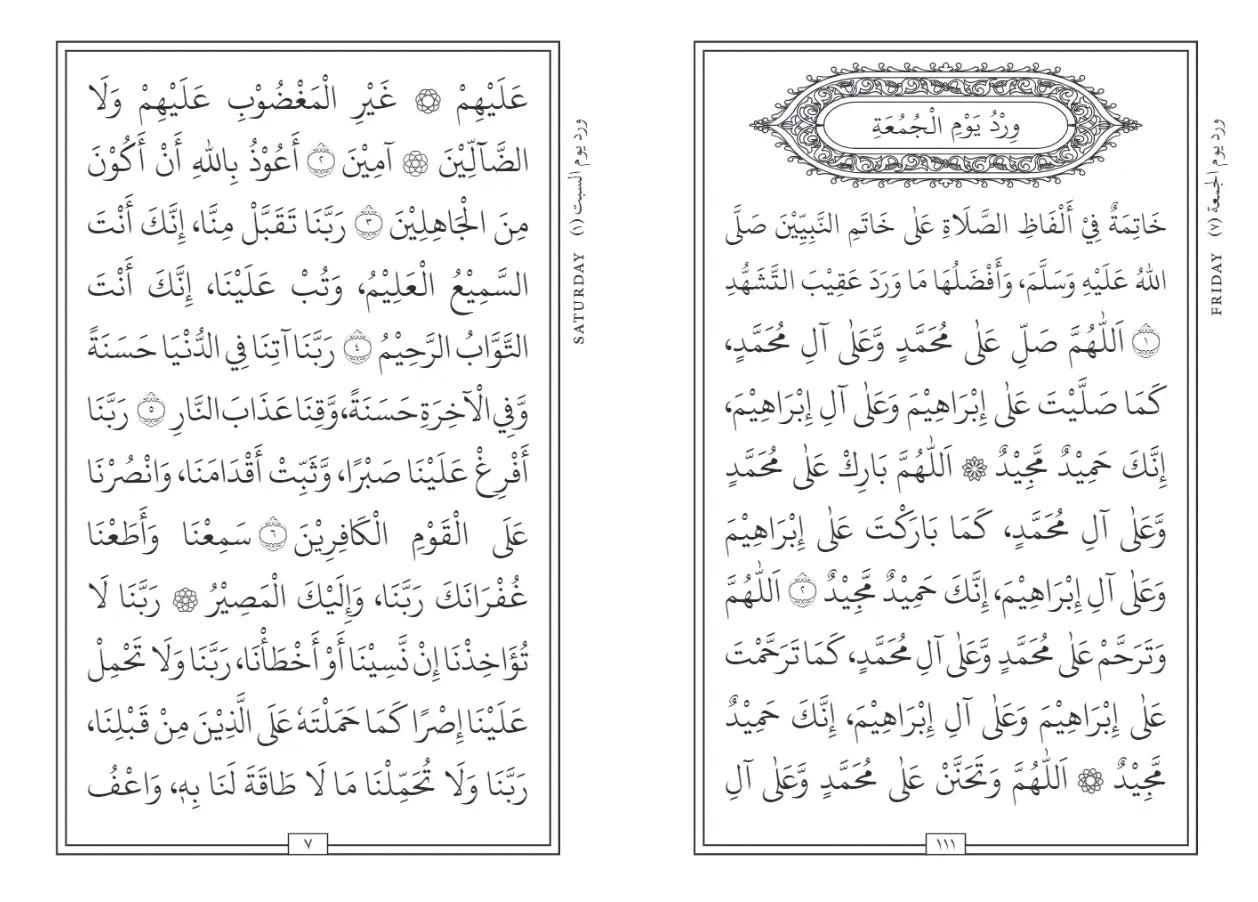 عَلَيْهِمْ ۞ غَيْرِ الْمَغْضُوْبِ عَلَيْهِمْ وَلَا
الضَّآلِّيْنَ ۞ آمِيْنَ ٢ أَعُوْذُ بِاللهِ أَنْ أَكُوْنَ
مِنَ الْجَاهِلِيْنَ ٣ رَبَّنَا تَقَبَّلْ مِنَّا، إِنَّكَ أَنْتَ
السَّمِيْعُ الْعَلِيْمُ، وَتُبْ عَلَيْنَا، إِنَّكَ أَنْتَ
التَّوَّابُ الرَّحِيْمُ ٤ رَبَّنَا آتِنَا فِي الدُّنْيَا حَسَنَةً
وَّفِي الْآخِرَةِ حَسَنَةً، وَّقِنَا عَذَابَ النَّارِ ٥ رَبَّنَا
أَفْرِغْ عَلَيْنَا صَبْرًا، وَّثَبِّتْ أَقْدَامَنَا، وَانْصُرْنَا
عَلَى الْقَوْمِ الْكَافِرِيْنَ ٦ سَمِعْنَا وَأَطَعْنَا
غُفْرَانَكَ رَبَّنَا، وَإِلَيْكَ الْمَصِيْرُ ۞ رَبَّنَا لَا
تُؤَاخِذْنَا إِنْ نَّسِيْنَا أَوْ أَخْطَأْنَا، رَبَّنَا وَلَا تَحْمِلْ
عَلَيْنَا إِصْرًا كَمَا حَمَلْتَهٗ عَلَى الَّذِيْنَ مِنْ قَبْلِنَا،
رَبَّنَا وَلَا تُحَمِّلْنَا مَا لَا طَاقَةَ لَنَا بِهٖ، وَاعْفُ
٧
ورد يوم السبت (١) SATURDAY
وِرْدُ يَوْمِ الْجُمُعَةِ
خَاتِمَةٌ فِيْ أَلْفَاظِ الصَّلَاةِ عَلٰى خَاتَمِ النَّبِيِّيْنَ صَلَّى
اللهُ عَلَيْهِ وَسَلَّمَ، وَأَفْضَلُهَا مَا وَرَدَ عَقِيْبَ التَّشَهُّدِ
١ اَللّٰهُمَّ صَلِّ عَلٰى مُحَمَّدٍ وَّعَلٰى آلِ مُحَمَّدٍ،
كَمَا صَلَّيْتَ عَلٰى إِبْرَاهِيْمَ وَعَلٰى آلِ إِبْرَاهِيْمَ،
إِنَّكَ حَمِيْدٌ مَّجِيْدٌ ۞ اَللّٰهُمَّ بَارِكْ عَلٰى مُحَمَّدٍ
وَّعَلٰى آلِ مُحَمَّدٍ، كَمَا بَارَكْتَ عَلٰى إِبْرَاهِيْمَ
وَعَلٰى آلِ إِبْرَاهِيْمَ، إِنَّكَ حَمِيْدٌ مَّجِيْدٌ ٢ اَللّٰهُمَّ
وَتَرَحَّمْ عَلٰى مُحَمَّدٍ وَّعَلٰى آلِ مُحَمَّدٍ، كَمَا تَرَحَّمْتَ
عَلٰى إِبْرَاهِيْمَ وَعَلٰى آلِ إِبْرَاهِيْمَ، إِنَّكَ حَمِيْدٌ
مَّجِيْدٌ ۞ اَللّٰهُمَّ وَتَحَنَّنْ عَلٰى مُحَمَّدٍ وَّعَلٰى آلِ
١١١
ورد يوم الجمعة (٧) FRIDAY